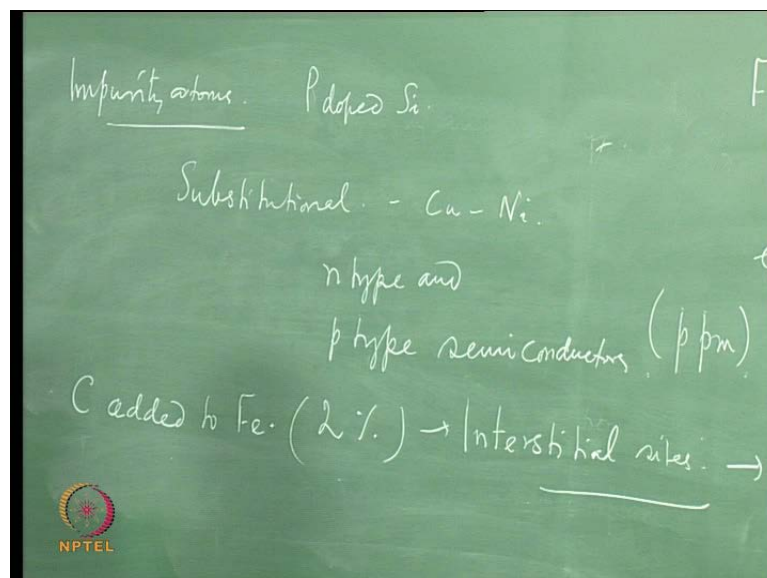 Impurity atoms. P doped Si.
F
Substitutional - Cu - Ni.
n type and
p type semiconductors (ppm)
C added to Fe. (2%) → Interstitial sites. →
NPTEL